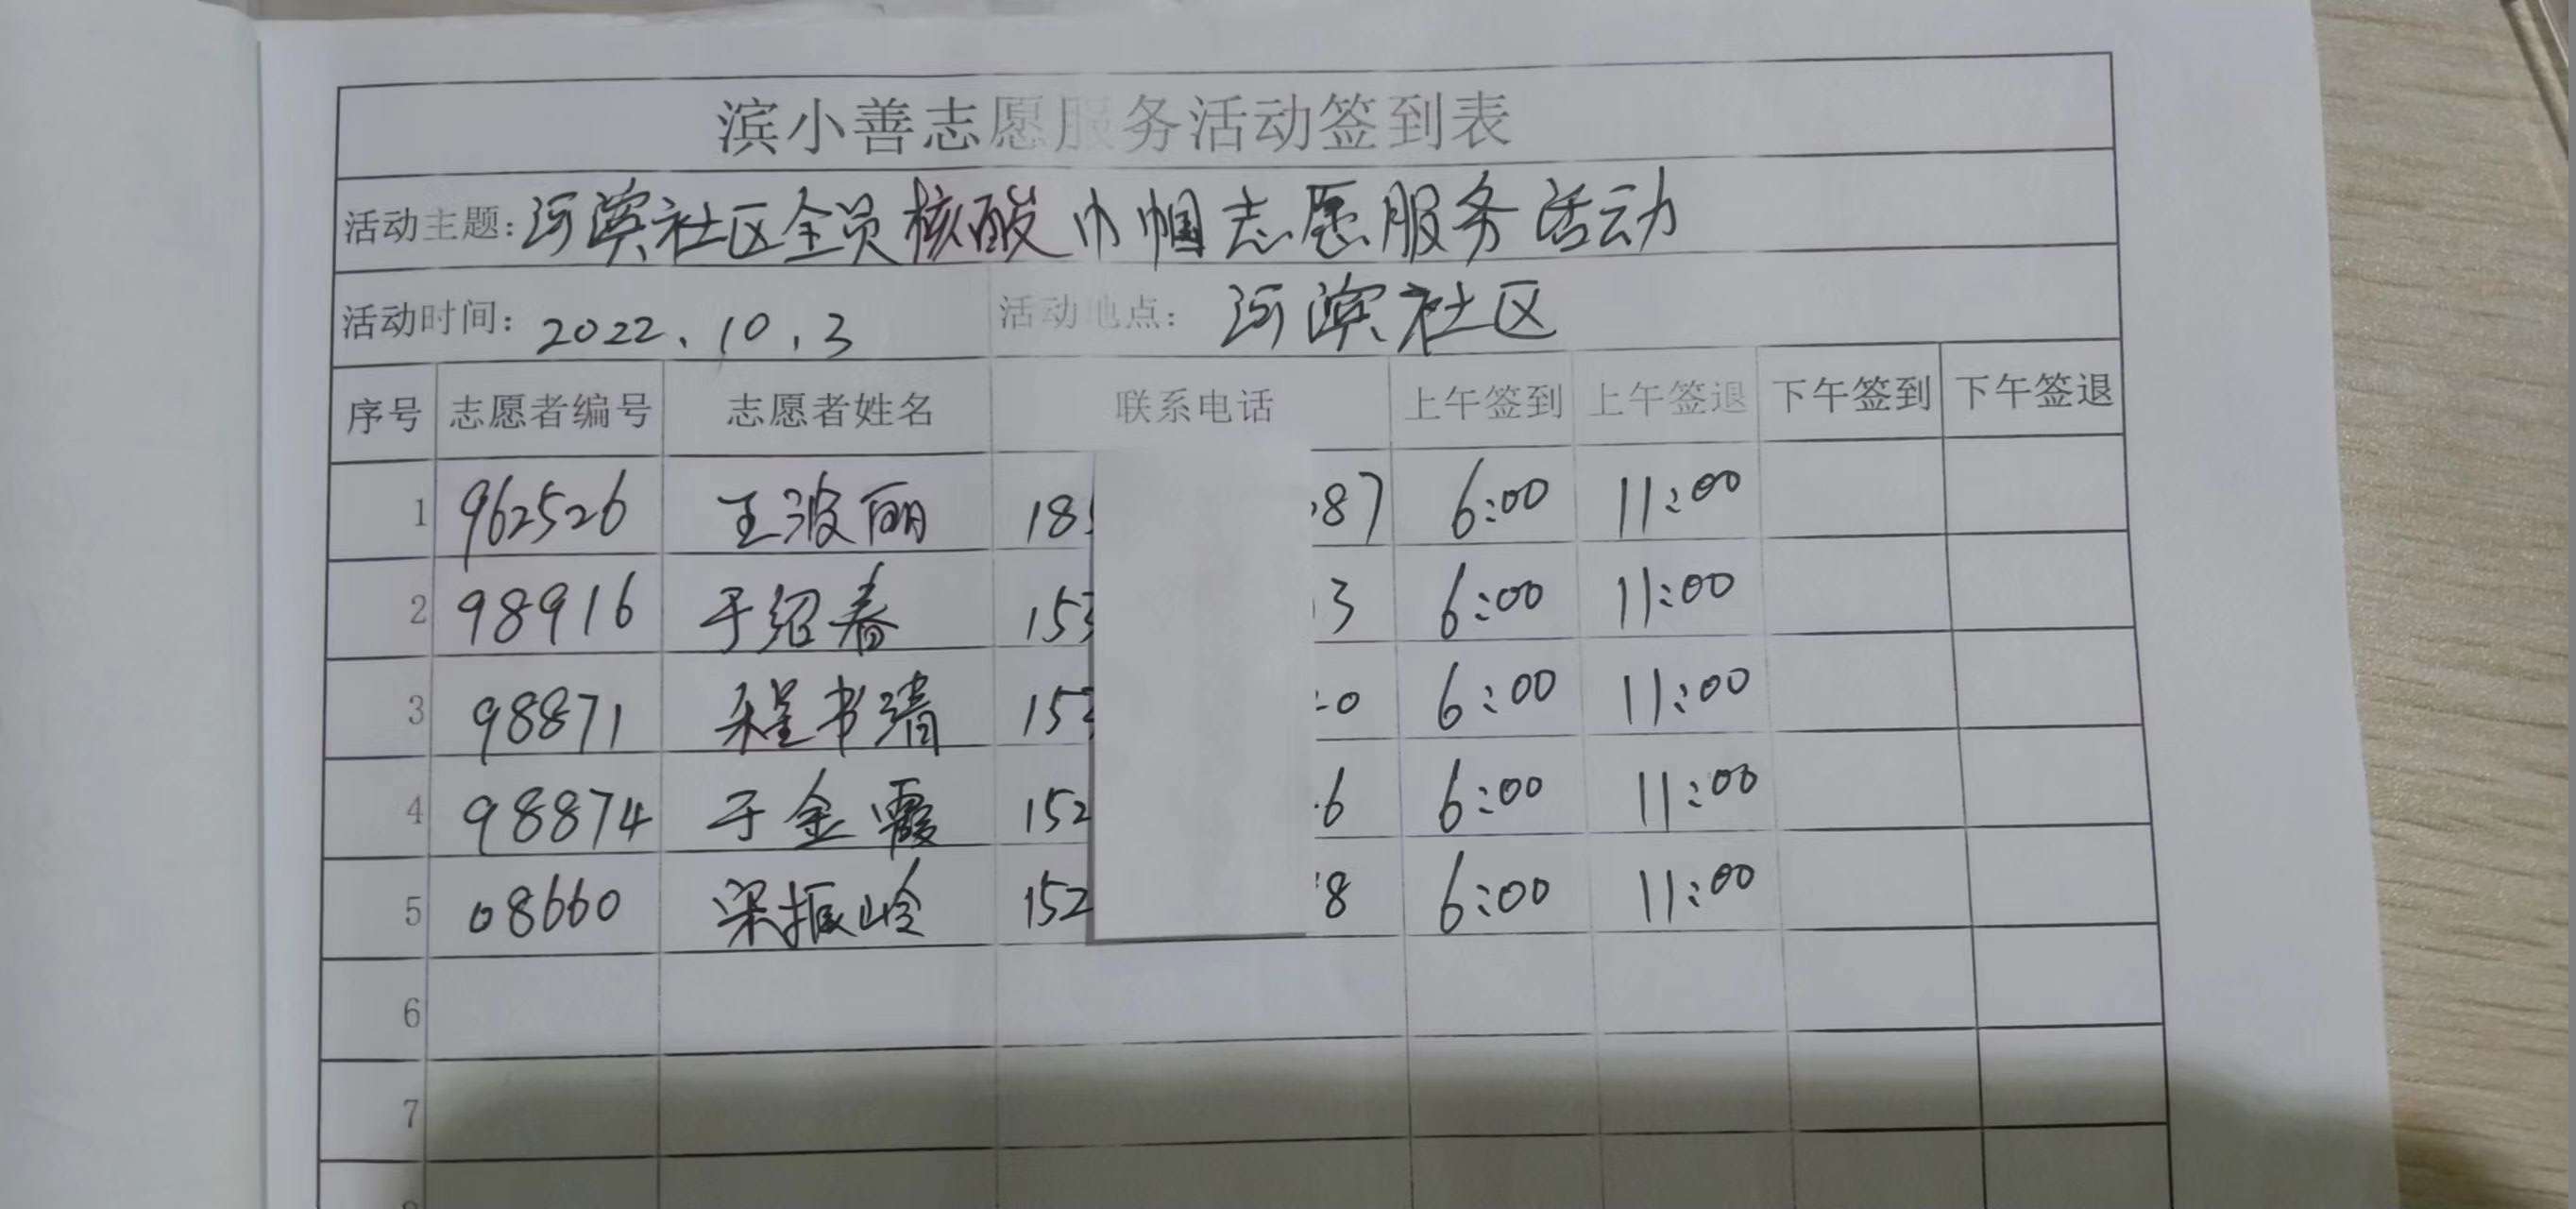 滨小善志愿服务活动签到表
活动主题：河滨社区全员核酸巾帼志愿服务活动
活动时间：2022.10.3 活动地点：河滨社区
序号 志愿者编号 志愿者姓名 联系电话 上午签到 上午签退 下午签到 下午签退
1 962526 王波丽 18 87 6:00 11:00
2 98916 于绍春 15 3 6:00 11:00
3 98871 程书清 15 0 6:00 11:00
4 98874 于金霞 152 6 6:00 11:00
5 08660 梁振岭 152 8 6:00 11:00
6
7